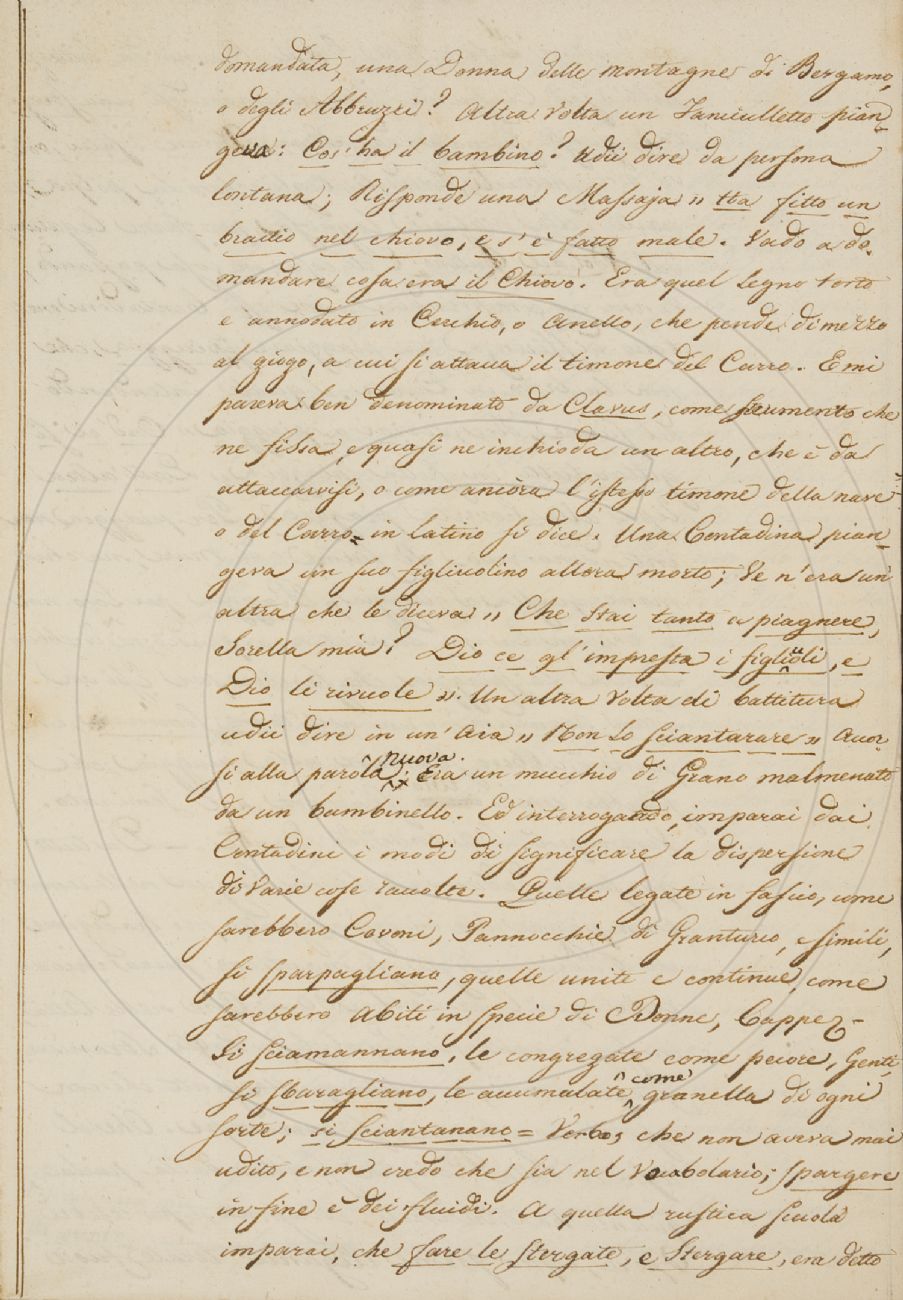 domandata, una Donna delle montagne di Bergamo,
o degli Abbruzzi? Altra volta un Fanciulletto pian-
geva: Cos' ha il bambino? Udii dire da persona
lontana; Risponde una Massaja „ Ha fitto un
braccio nel chiovo, e s'è fatto male. Vado a do-
mandare cosa era il Chiovo. Era quel Legno torto
e annodato in Cerchio, o Anello, che pende di mezzo
al giogo, a cui si attacca il timone del Carro. E mi
pareva ben denominato da Clavus, come strumento che
ne fissa, e quasi ne inchioda un altro, che è da
attaccarvisi, o come ancora l'istesso timone della nave
o del Carro = in latino si dice. Una Contadina pian-
geva un suo figliuolino allora morto; Ve n'era un'
altra che le diceva „ Che stai tanto a piagnere,
Sorella mia? Dio ce gl'impresta i figliuoli, e
Dio li rivuole „. Un altra volta di battitura
udii dire in un'Aia „ Non lo sciantarare „ Accor-
si alla parola nuova. Era un mucchio di Grano malmenato
da un bambinello. Ed interrogando, imparai dai
Contadini i modi di significare la dispersione
di varie cose raccolte. Quelle legate in fascio, come
sarebbero Covoni, Pannocchie di Granturco, e simili,
si sparpagliano, quelle unite e continue, come
sarebbero Abiti in specie di Donne, Cappe
Si sciamannano, le congregate come pecore, Genti,
si sbaragliano, le accumulate come granella di ogni
sorte; si sciantanano = Verbo, che non aveva mai
udito, e non credo che sia nel Vocabolario; spargere
in fine è dei fluidi. A quella rustica scuola
imparai, che fare le stergate, e Stergare, era detto